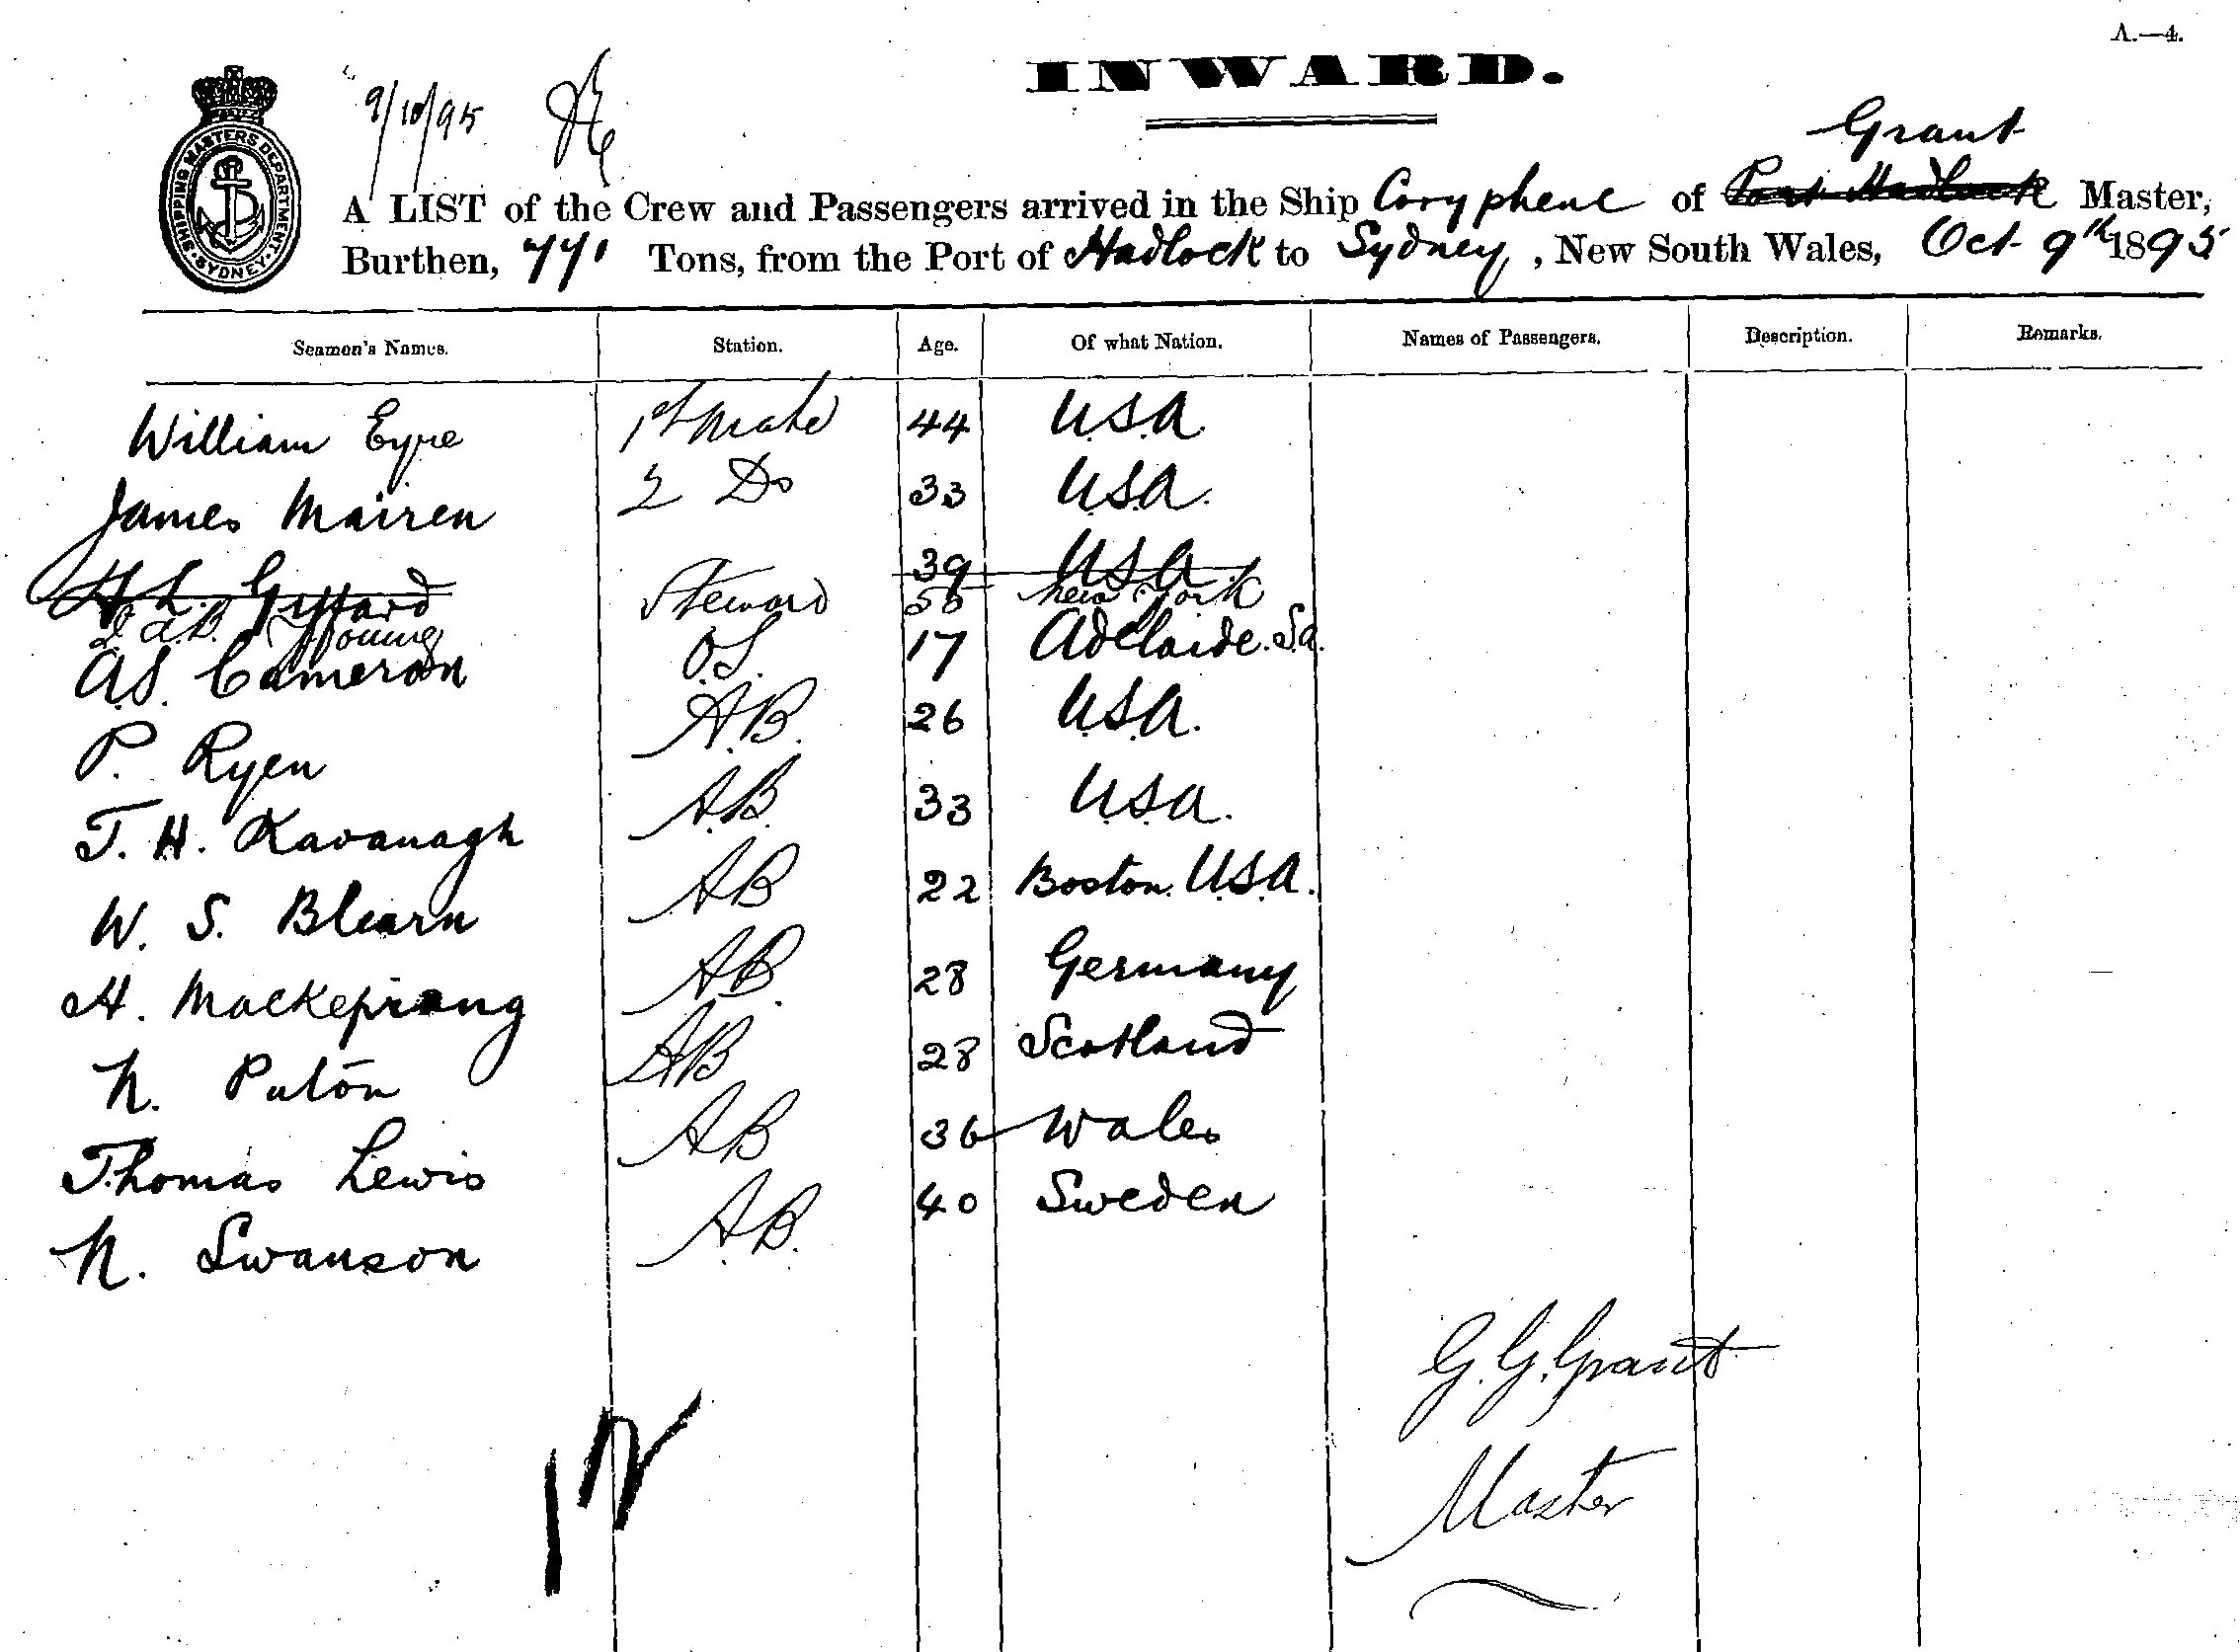 A.—4.
INWARD.
9/10/95
SHIPPING MASTERS DEPARTMENT · SYDNEY ·
Grant
A LIST of the Crew and Passengers arrived in the Ship Coryphene of Port Hadlock Master,
Burthen, 771 Tons, from the Port of Hadlock to Sydney, New South Wales, Oct 9th 1895
Seamen's Names. Station. Age. Of what Nation. Names of Passengers. Description. Remarks.
William Eyre 1st Mate 44 U.S.A.
James Mairen 2 Do 33 U.S.A.
H. L. Giffard 39 U.S.A.
Young Steward New York
A.S. Cameron O.S. 17 Adelaide. S.a.
P. Ryen A.B. 26 U.S.A.
T. H. Kavanagh A.B. 33 U.S.A.
W. S. Blearn AB 22 Boston. U.S.A.
H. Mackeprang AB. 28 Germany
N. Paton AB 28 Scotland
Thomas Lewis AB 36 Wales
N. Swanson A.B. 40 Sweden
G. G. Grant
Master
12